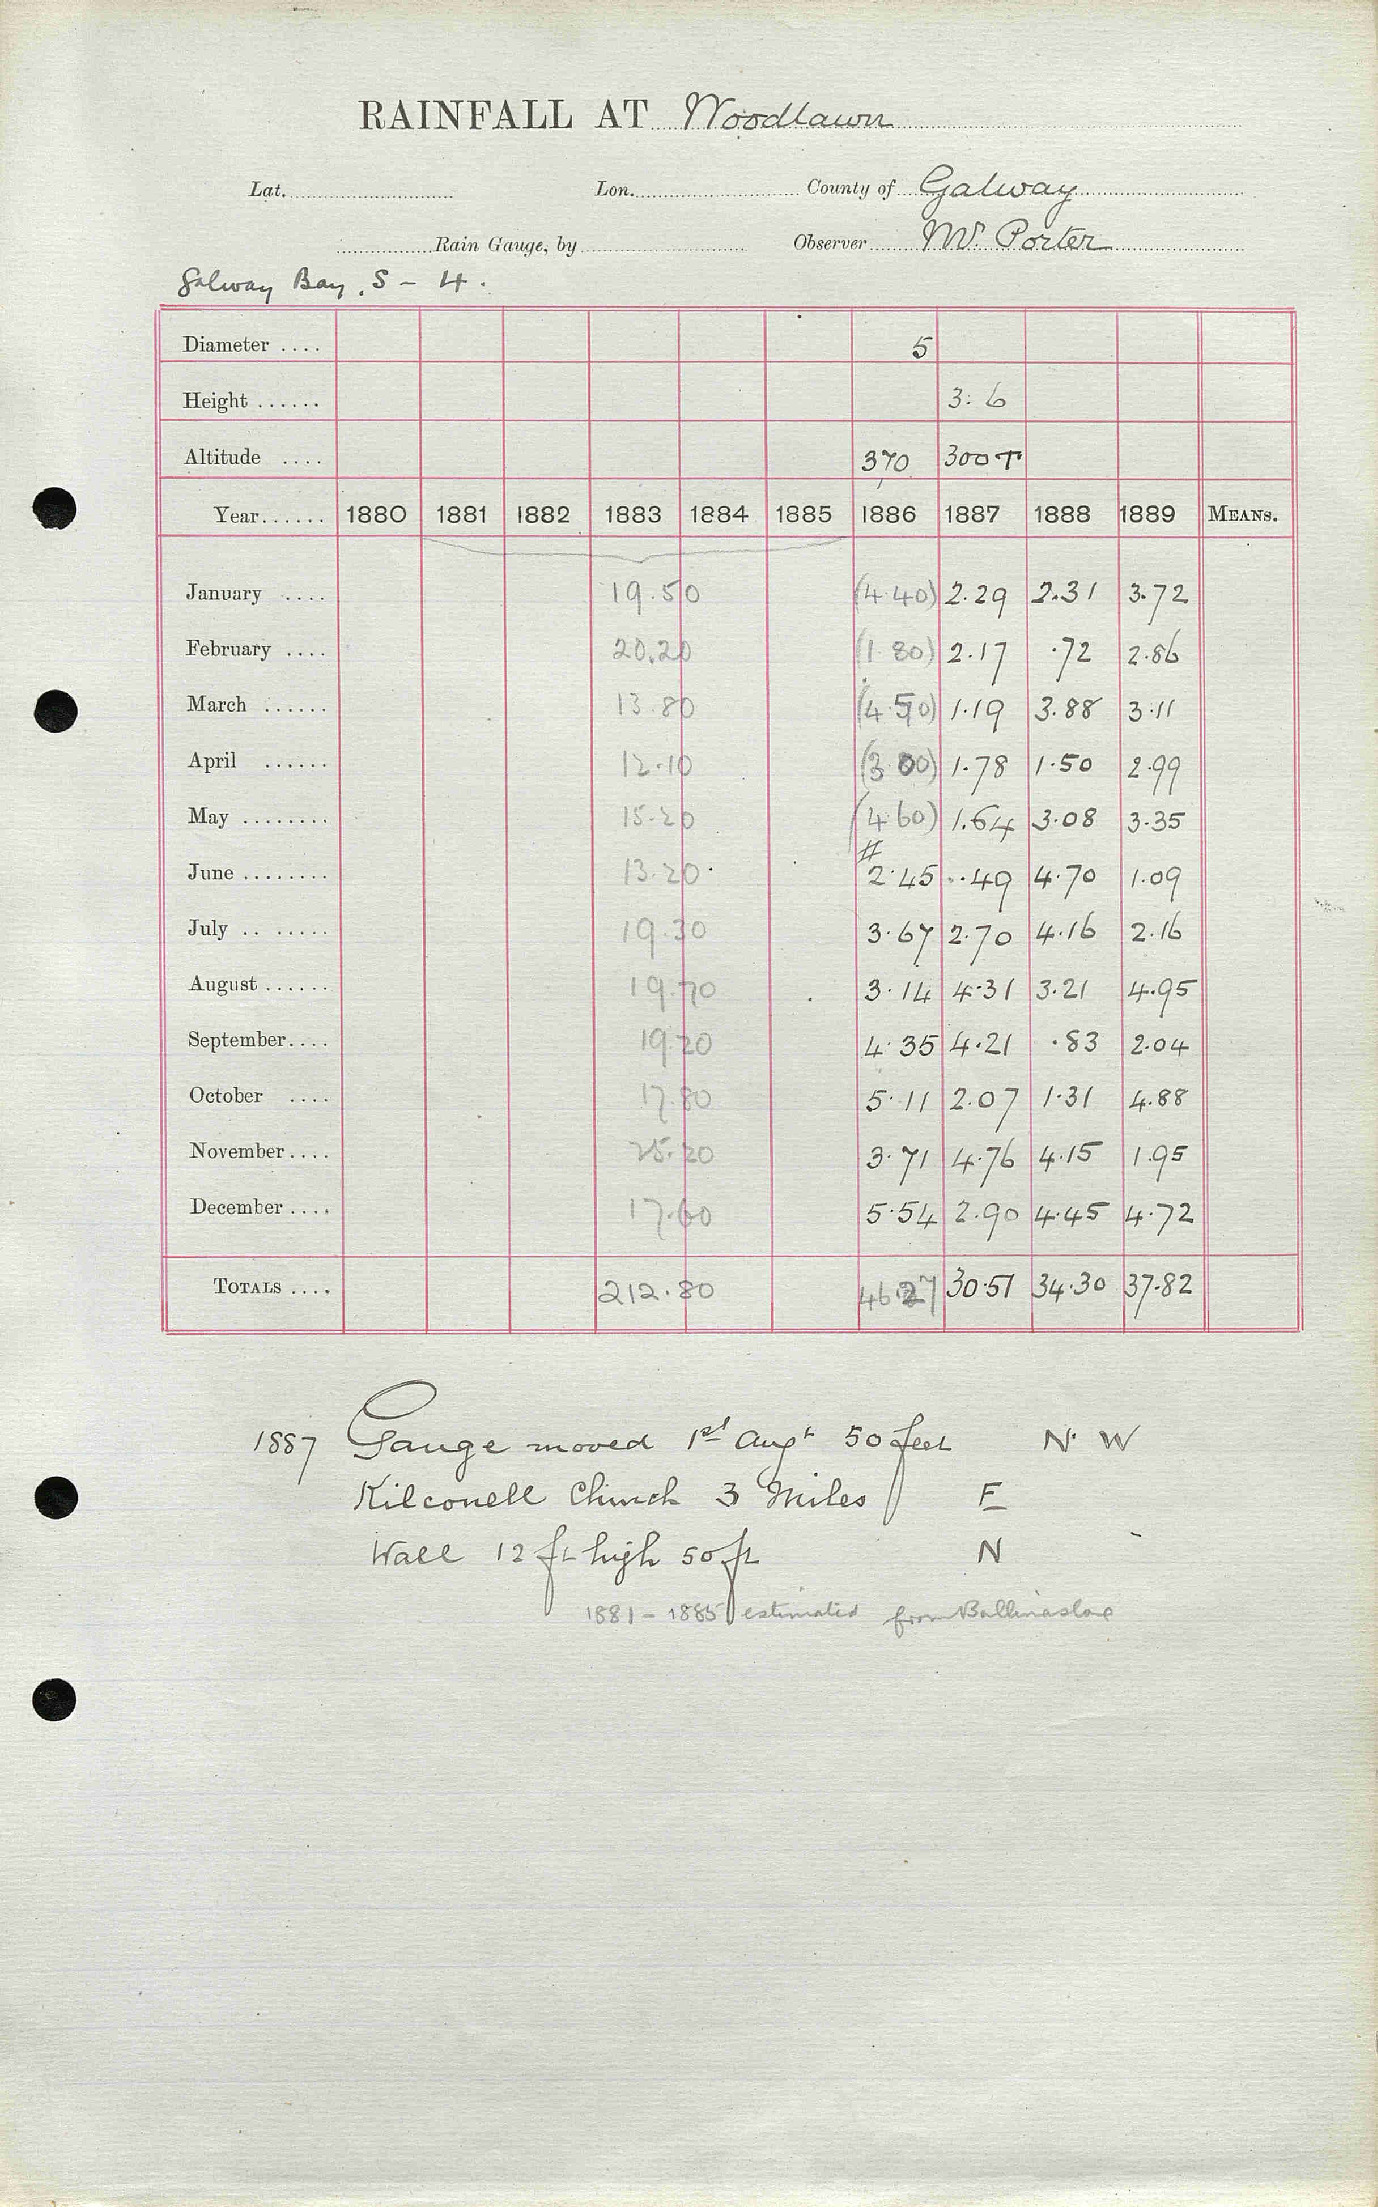 RAINFALL AT Woodlawn
Lat. Lon. County of Galway
Rain Gauge, by Observer Mr. Porter
Galway Bay, S - 4.
Diameter .... 5
Height ...... 3: 6
Altitude .... 370 300 T
Year...... 1880 1881 1882 1883 1884 1885 1886 1887 1888 1889 MEANS.
January .... 19.50 (4.40) 2.29 2.31 3.72
February .... 20.20 (1.80) 2.17 .72 2.86
March ...... 13.80 (4.50) 1.19 3.88 3.11
April ...... 12.10 (3.00) 1.78 1.50 2.99
May ........ 15.20 (4.60) 1.64 3.08 3.35
June ........ 13.20 # 2.45 .49 4.70 1.09
July .. ..... 19.30 3.67 2.70 4.16 2.16
August ...... 19.70 3.14 4.31 3.21 4.95
September.... 19.20 4.35 4.21 .83 2.04
October .... 17.80 5.11 2.07 1.31 4.88
November.... 25.20 3.71 4.76 4.15 1.95
December.... 17.60 5.54 2.90 4.45 4.72
TOTALS .... 212.80 46.27 30.51 34.30 37.82
1887 Gauge moved 1st Augt 50 feet N. W
Kilconell Church 3 Miles E
Wall 12 ft high 50 ft N
1881 - 1885 estimated from Ballinasloe